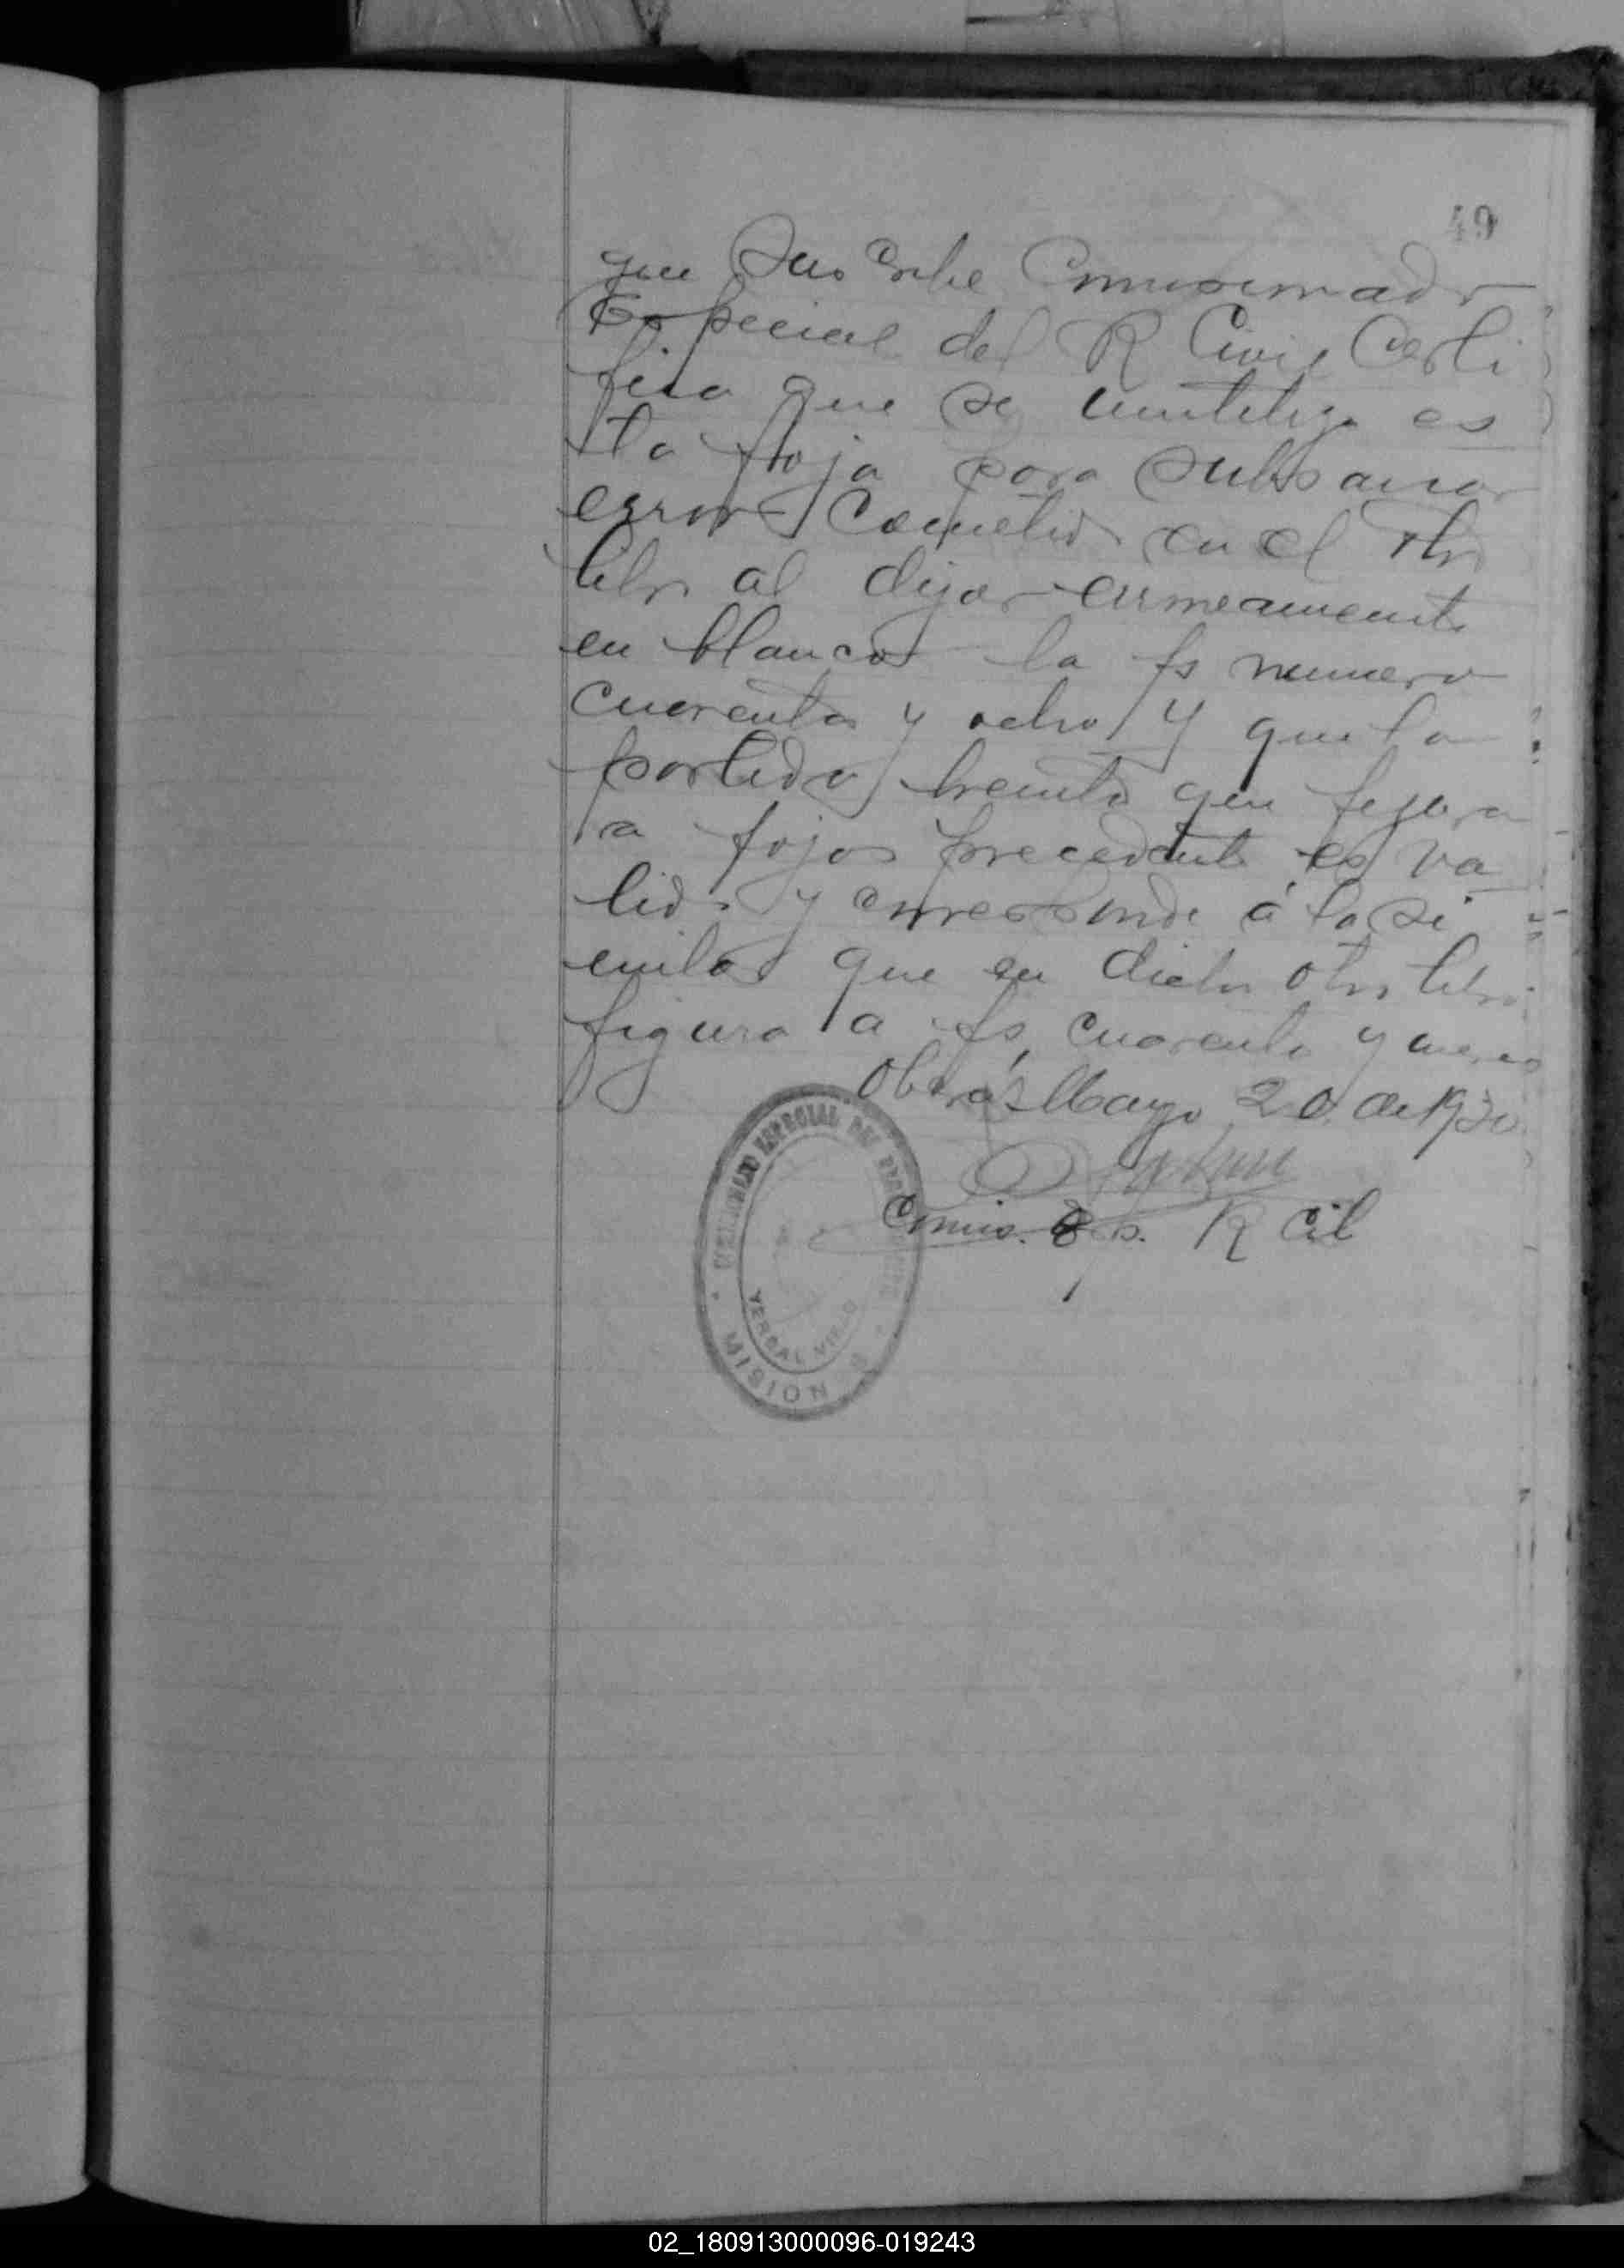 49
que Suscribe Comisionado
Especial del R Civil Certi
fica que se inutiliza es
ta foja para subsanar
error cometido en el otro
libro al dejar erroneamente
en blanco la fs numero
cuarenta y ocho y que la
partida treinta que figura
a fojas precedente es va
lida y corresponde á la si
milar que en dicho otro libro
figura a fs cuarenta y nueve
Oberá Mayo 20 de 1930
Comis. Esp. R Cil
ESPECIAL DEL
YERBAL VIEJO
MISIONES
02_180913000096-019243